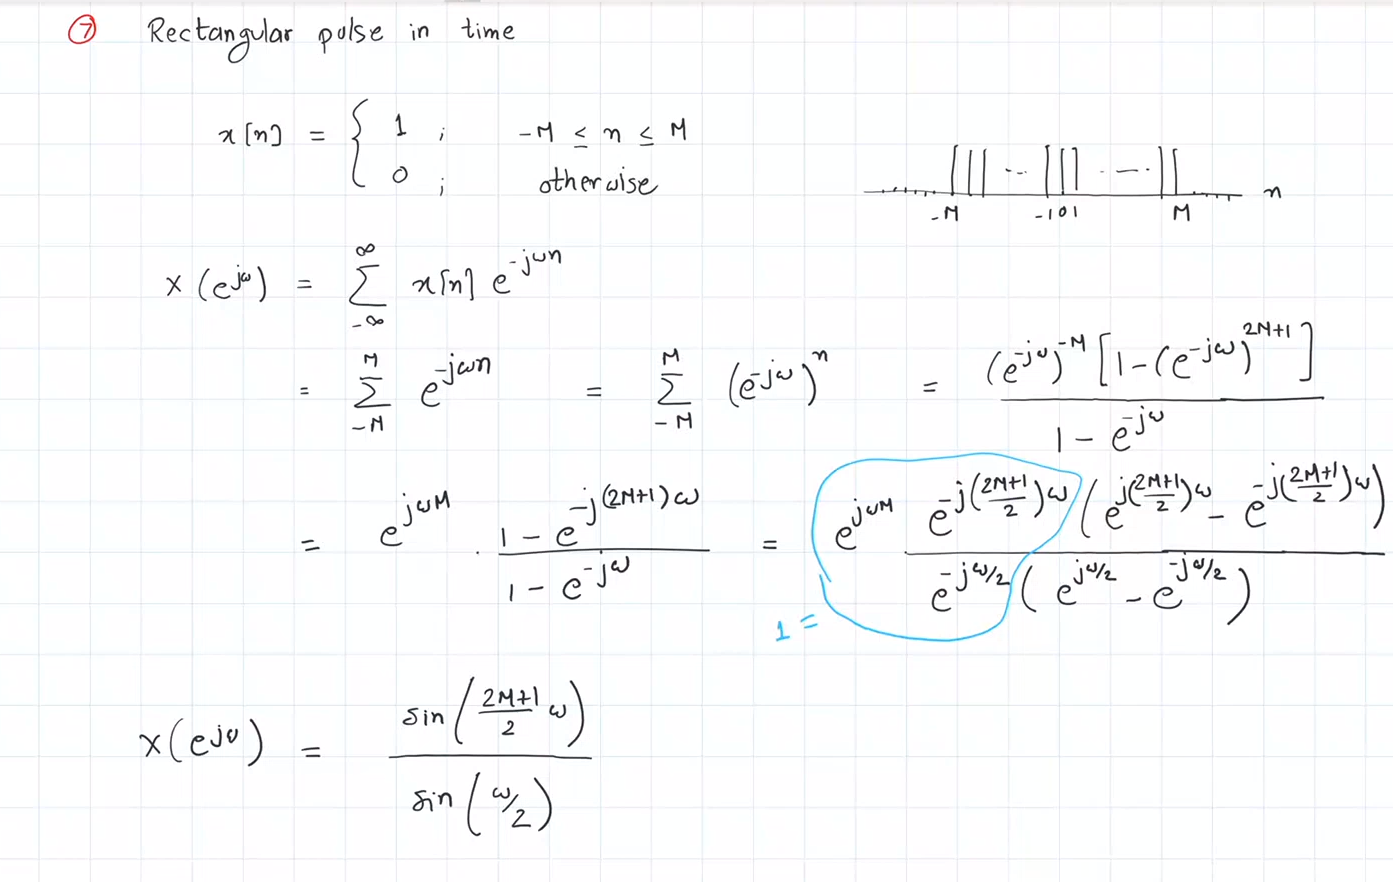 ⑦ Rectangular pulse in time
x[n] = { 1 ; -M ≤ n ≤ M
0 ; otherwise
-M -1 0 1 M n
X(e^{jω}) = ∑_{-∞}^{∞} x[n] e^{-jωn}
= ∑_{-M}^{M} e^{-jωn} = ∑_{-M}^{M} (e^{-jω})^n = (e^{-jω})^{-M} [1-(e^{-jω})^{2M+1}] / (1 - e^{-jω})
= e^{jωM} · (1 - e^{-j(2M+1)ω}) / (1 - e^{-jω}) = e^{jωM} e^{-j(\frac{2M+1}{2})ω} (e^{j(\frac{2M+1}{2})ω} - e^{-j(\frac{2M+1}{2})ω}) / e^{-jω/2} (e^{jω/2} - e^{-jω/2})
1 =
X(e^{jω}) = sin(\frac{2M+1}{2} ω) / sin(ω/2)